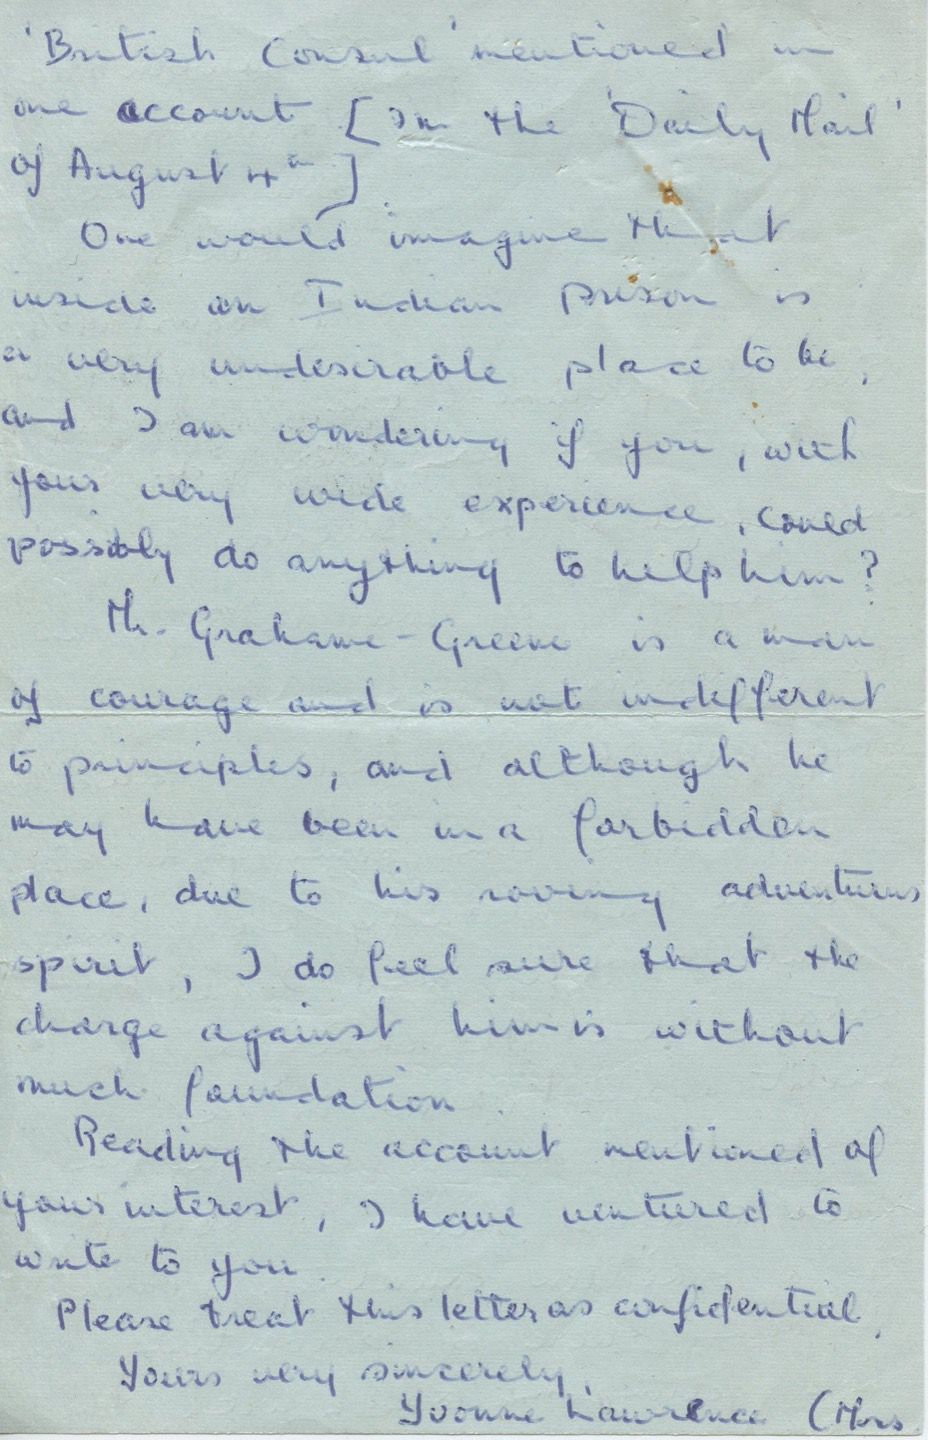 'British Consul' mentioned in
one account [In the 'Daily Mail'
of August 4th]
One would imagine that
inside an Indian prison is
a very undesirable place to be,
and I am wondering if you, with
your very wide experience, could
possibly do anything to help him?
Mr. Grahame-Greene is a man
of courage and is not indifferent
to principles, and although he
may have been in a forbidden
place, due to his roving adventurous
spirit, I do feel sure that the
charge against him is without
much foundation.
Reading the account mentioned of
your interest, I have ventured to
write to you.
Please treat this letter as confidential,
Yours very sincerely,
Yvonne Lawrence (Mrs